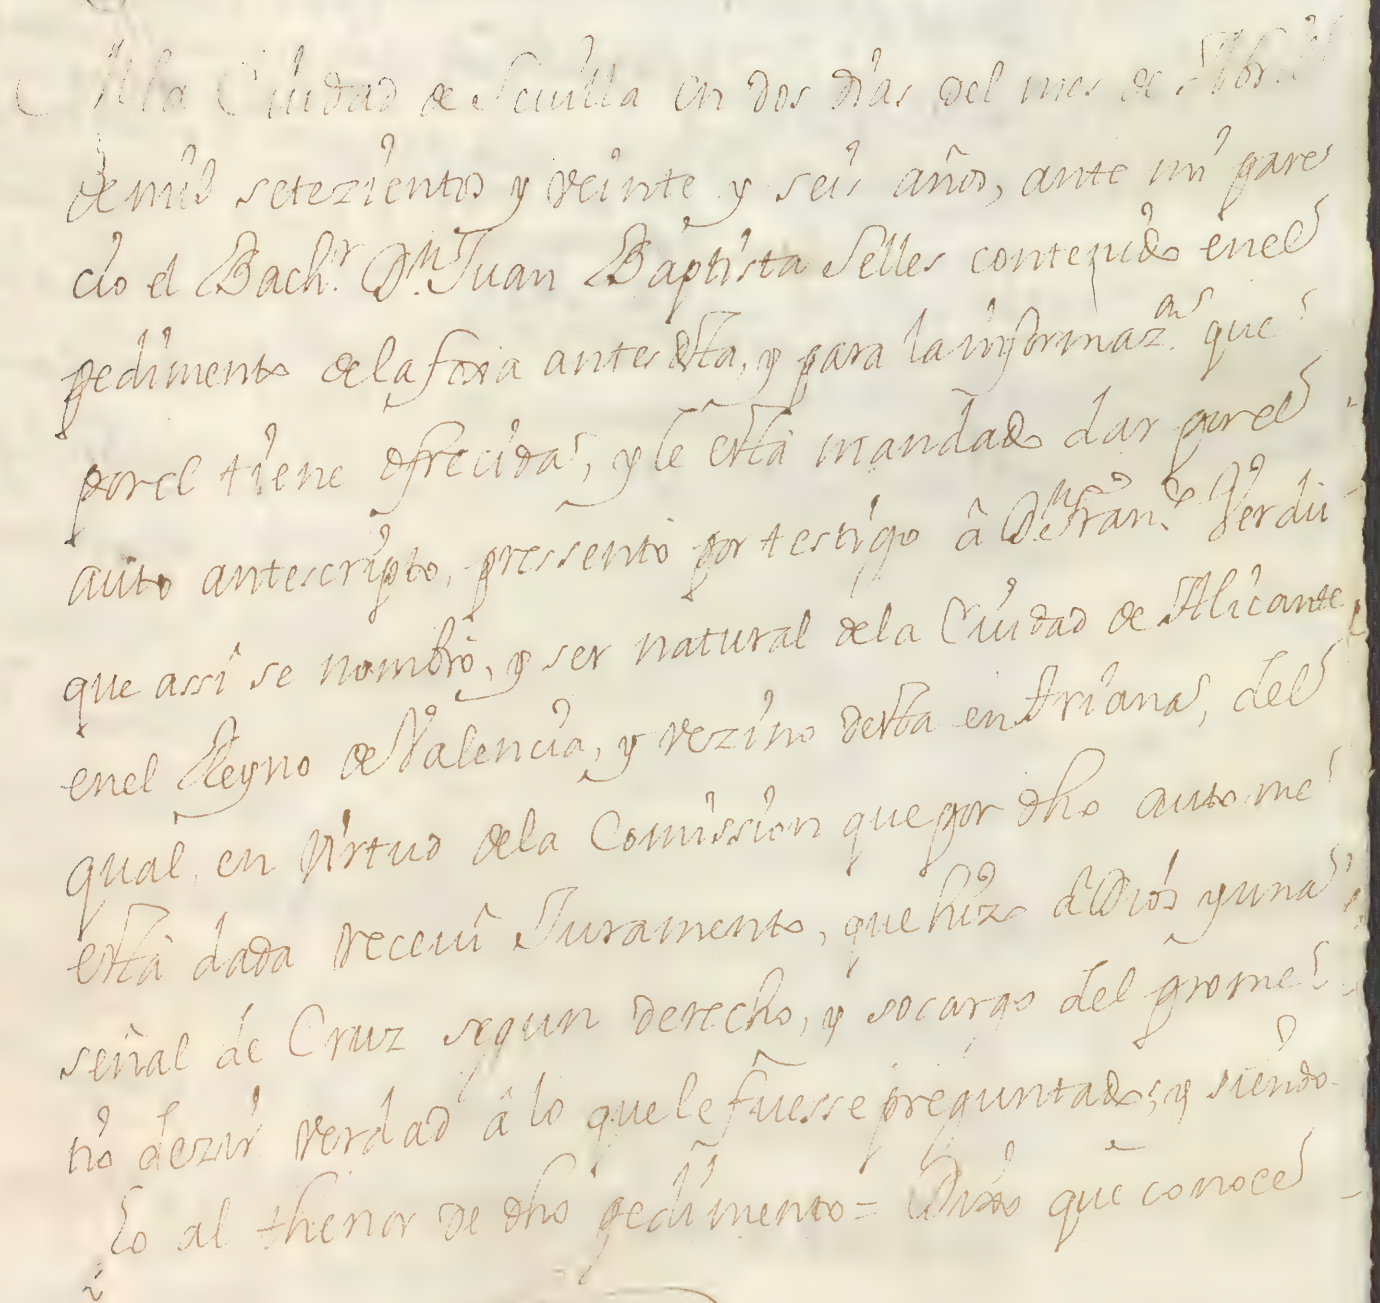 En la Ciudad de Sevilla en dos dias del mes de Abril
de mil setezientos y veinte y seis años, ante mi pare
cio el Bachr. Dn. Juan Baptista Selles contenido en el
pedimento de la foxa antes desta, y para la informazon. que
por el tiene ofrecida, y le està mandado dar por el
auto antescripto, pressentò por testigo â Dn. Franco. Verdu
que assi se nombrò, y ser natural de la Ciudad de Alicante
en el Reyno de Valencia, y vezino desta en Triana, del
qual, en virtud de la Comission que por dho auto me
està dada recevi Juramento, que hizo â Dios y una
señal de Cruz segun derecho, y socargo del prome
tiò dezir verdad â lo que le fuesse preguntado, y siendo
lo al thenor de dho pedimento = Dixo que conoce